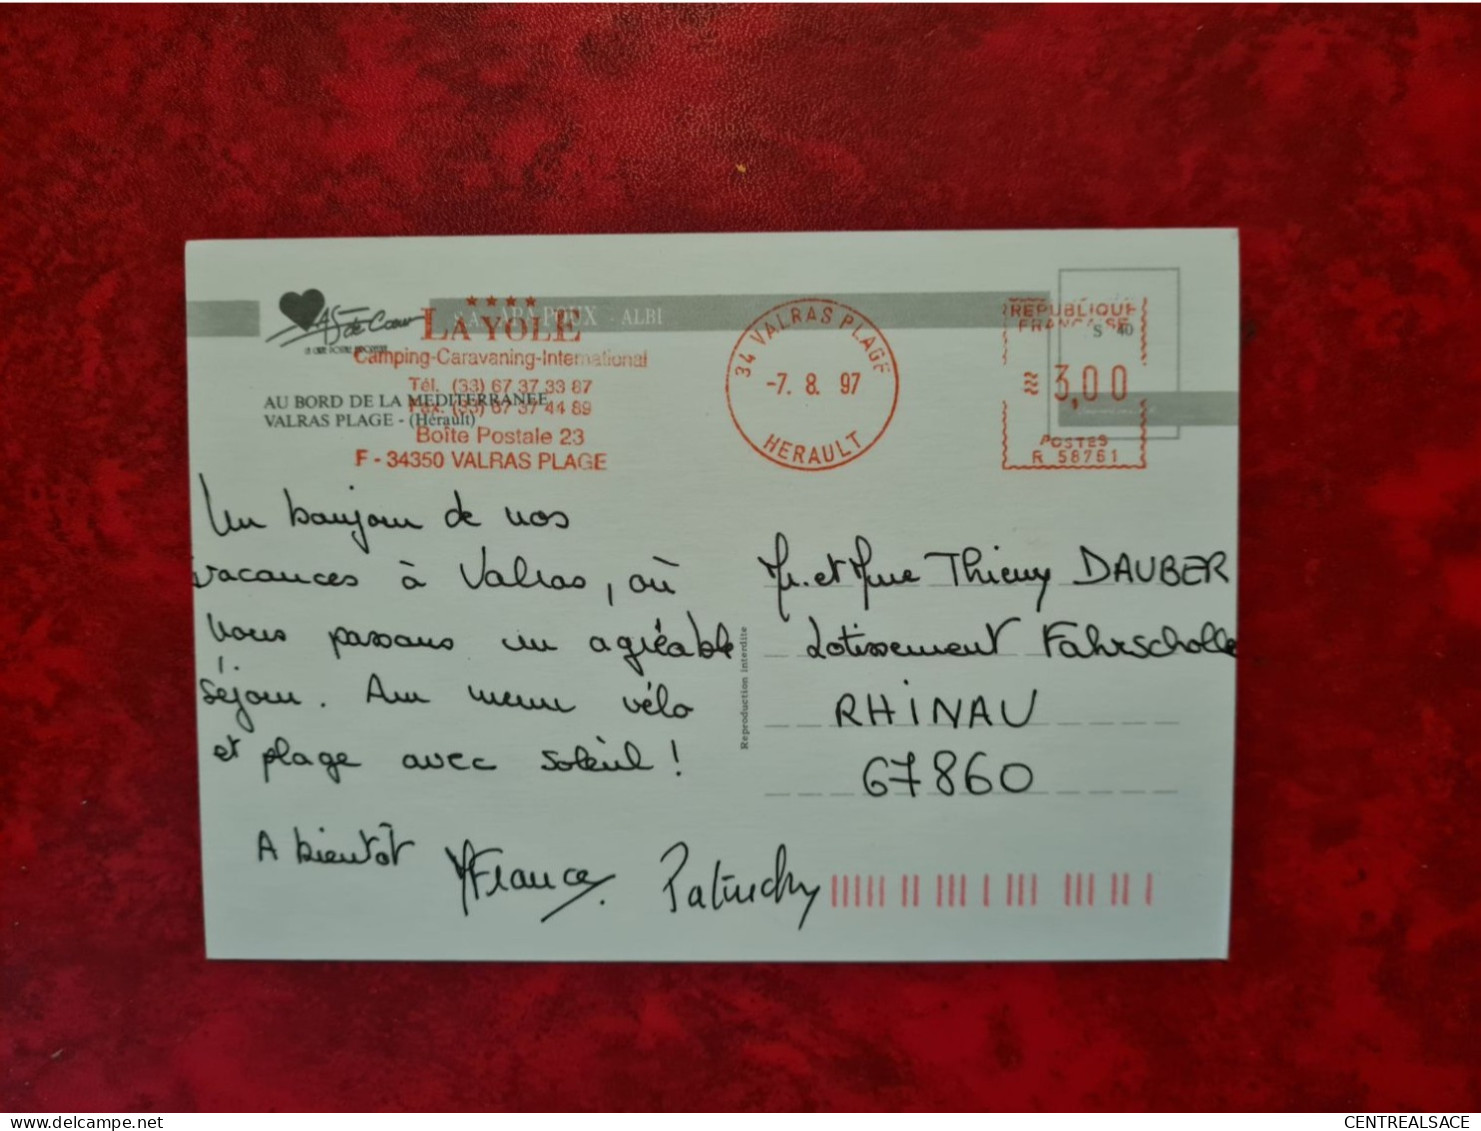 As de Cœur
S.A. APA POUX - ALBI
★★★★
LA YOLE
Camping-Caravaning-International
Tél. (33) 67 37 33 87
Fax. (33) 67 37 44 89
Boîte Postale 23
F - 34350 VALRAS PLAGE
AU BORD DE LA MEDITERRANEE
VALRAS PLAGE - (Hérault)
34 VALRAS PLAGE
-7. 8. 97
HERAULT
REPUBLIQUE
FRANCAISE
S 40
3,00
POSTES
R 58761
Un bonjour de nos
vacances à Valras, où
nous passons un agréable
séjour. Au menu vélo
et plage avec soleil !
A bientôt
France Patuchy
Reproduction interdite
Mr. et Mme Thierry DAUBER
Lotissement Fahrscholle
RHINAU
67860
CENTREALSACE